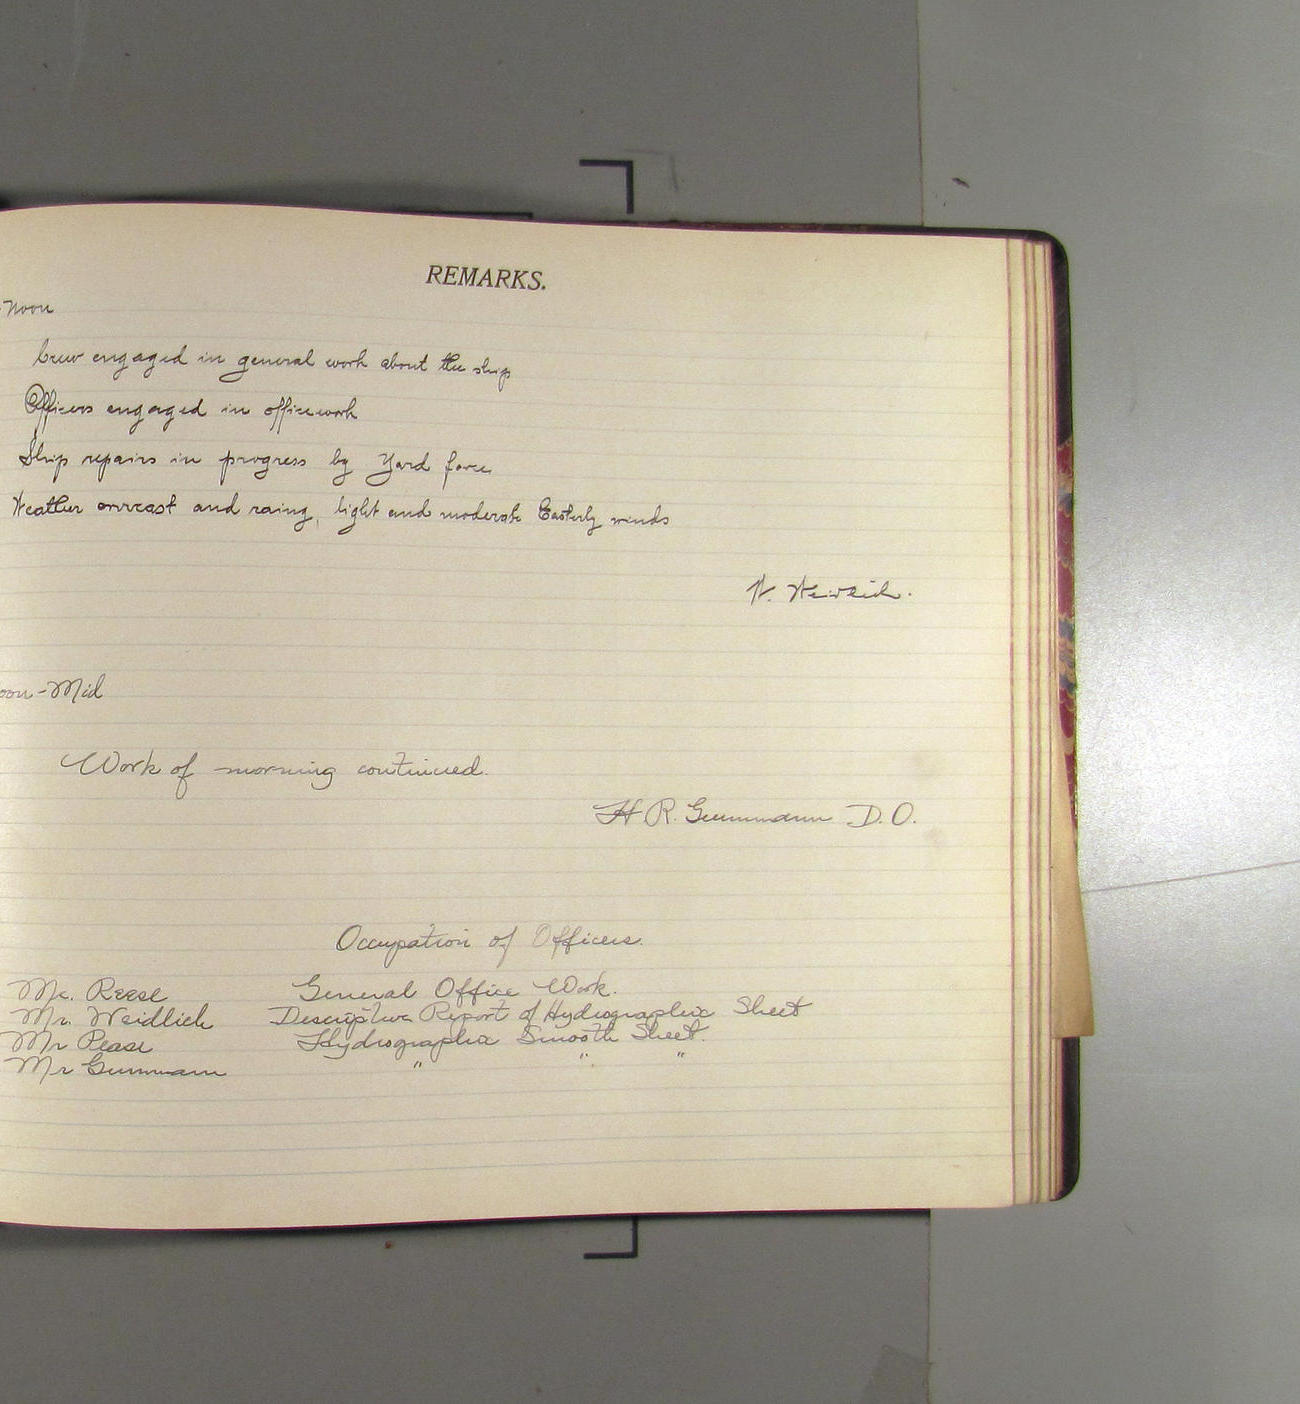 REMARKS.
-Noon
Crew engaged in general work about the ship
Officers engaged in officework
Ship repairs in progress by Yard force
Weather overcast and raing, light and moderate Easterly winds
W. Weidlich.
oon-Mid
Work of morning continued.
H R. Gummann D.O.
Occupation of Officers.
Mr. Reese General Office Work.
Mr. Weidlich Descriptive Report of Hydrographic Sheet
Mr Pease Hydrographic Smooth Sheet.
Mr Gummann " " "